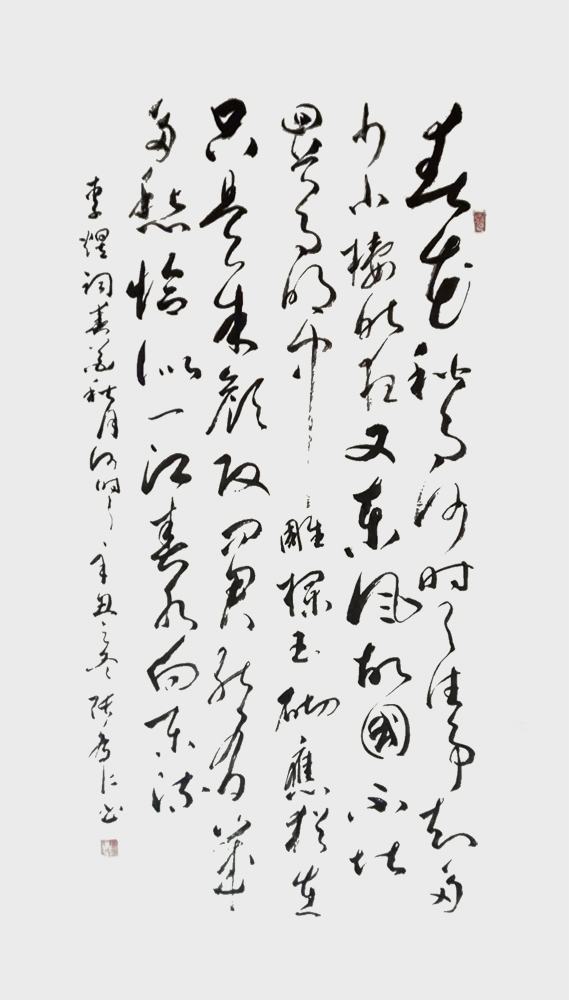 春花秋月何时了往事知多
少小楼昨夜又东风故國不堪
回首月明中雕栏玉砌應猶在
只是朱颜改问君能有幾
多愁恰似一江春水向东流
李煜词春花秋月何时了辛丑之冬